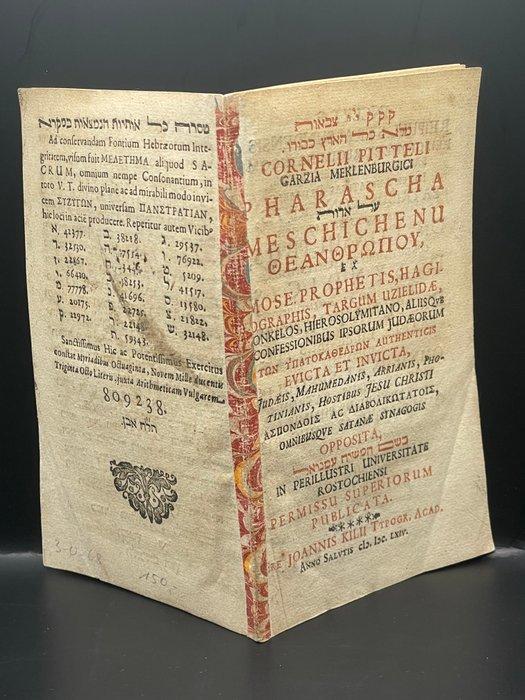 מסרה כל אותיות הנמצאות במקרא
Ad conservandam Fontium Hebræorum Inte-
gritatem, visum fuit ΜΕΛΕΤΗΜΑ aliquod SA-
CRUM, omnium nempe Consonantium, in
toto V. T. divino plane ac ad mirabili modo invi-
cem ΣΥΖΥΓΩΝ, universam ΠΑΝΣΤΡΑΤΙΑΝ,
hic loci in acie producere. Reperitur autem Vicib9
א. 41377. ב. 38218. ג. 29537.
ד. 32530. 76922.
ז. 22867. 5209.
י. 66420. ל. 41517.
מ. 77778. נ. 41696. ס. 13580.
ע. 20175. פ. 22725. צ. 21822.
ק. 22972. ש. 32148.
ת. 59343.
Sanctissimus Hic ac Potentissimus Exercitus
constat Myriadibus Octuaginta, Novem Mille ducentis
Triginta Octo Literis, juxta Arithmeticam Vulgarem
809238.
5-0.68
150.
ק ק ק י׳ צבאות
מלא כל הארץ כבודו.
CORNELII PITTELI
GARZIA MEKLENBURGICI
PHARASCHA
על אודות
MESCHICHENU
ΘΕΑΝΘΡΩΠΟΥ,
EX
MOSE, PROPHETIS, HAGI-
OGRAPHIS, TARGUM UZIELIDÆ,
ONKELOS, HIEROSOLYMITANO, ALIISQVE
CONFESSIONIBUS IPSORUM JUDÆORUM
ΤΩΝ ΥΠΑΤΟΚΑΘΕΔΡΩΝ AUTHENTICIS
EVICTA ET INVICTA,
JUDÆIS, MAHUMEDANIS, ARRIANIS, PHO-
TINIANIS, HOSTIBUS JESU CHRISTI
ΑΣΠΟΝΔΟΙΣ AC ΔΙΑΒΟΛΙΚΩΤΑΤΟΙΣ,
OMNIBUSQVE SATANÆ SYNAGOGIS
OPPOSITA,
בשם המשיח עמנואל
IN PERILLUSTRI UNIVERSITATE
ROSTOCHIENSI
PERMISSU SUPERIORUM
PUBLICATA.
JOANNIS KILII TYPOGR. ACAD.
ANNO SALVTIS cIɔ. Iɔc. LXIV.